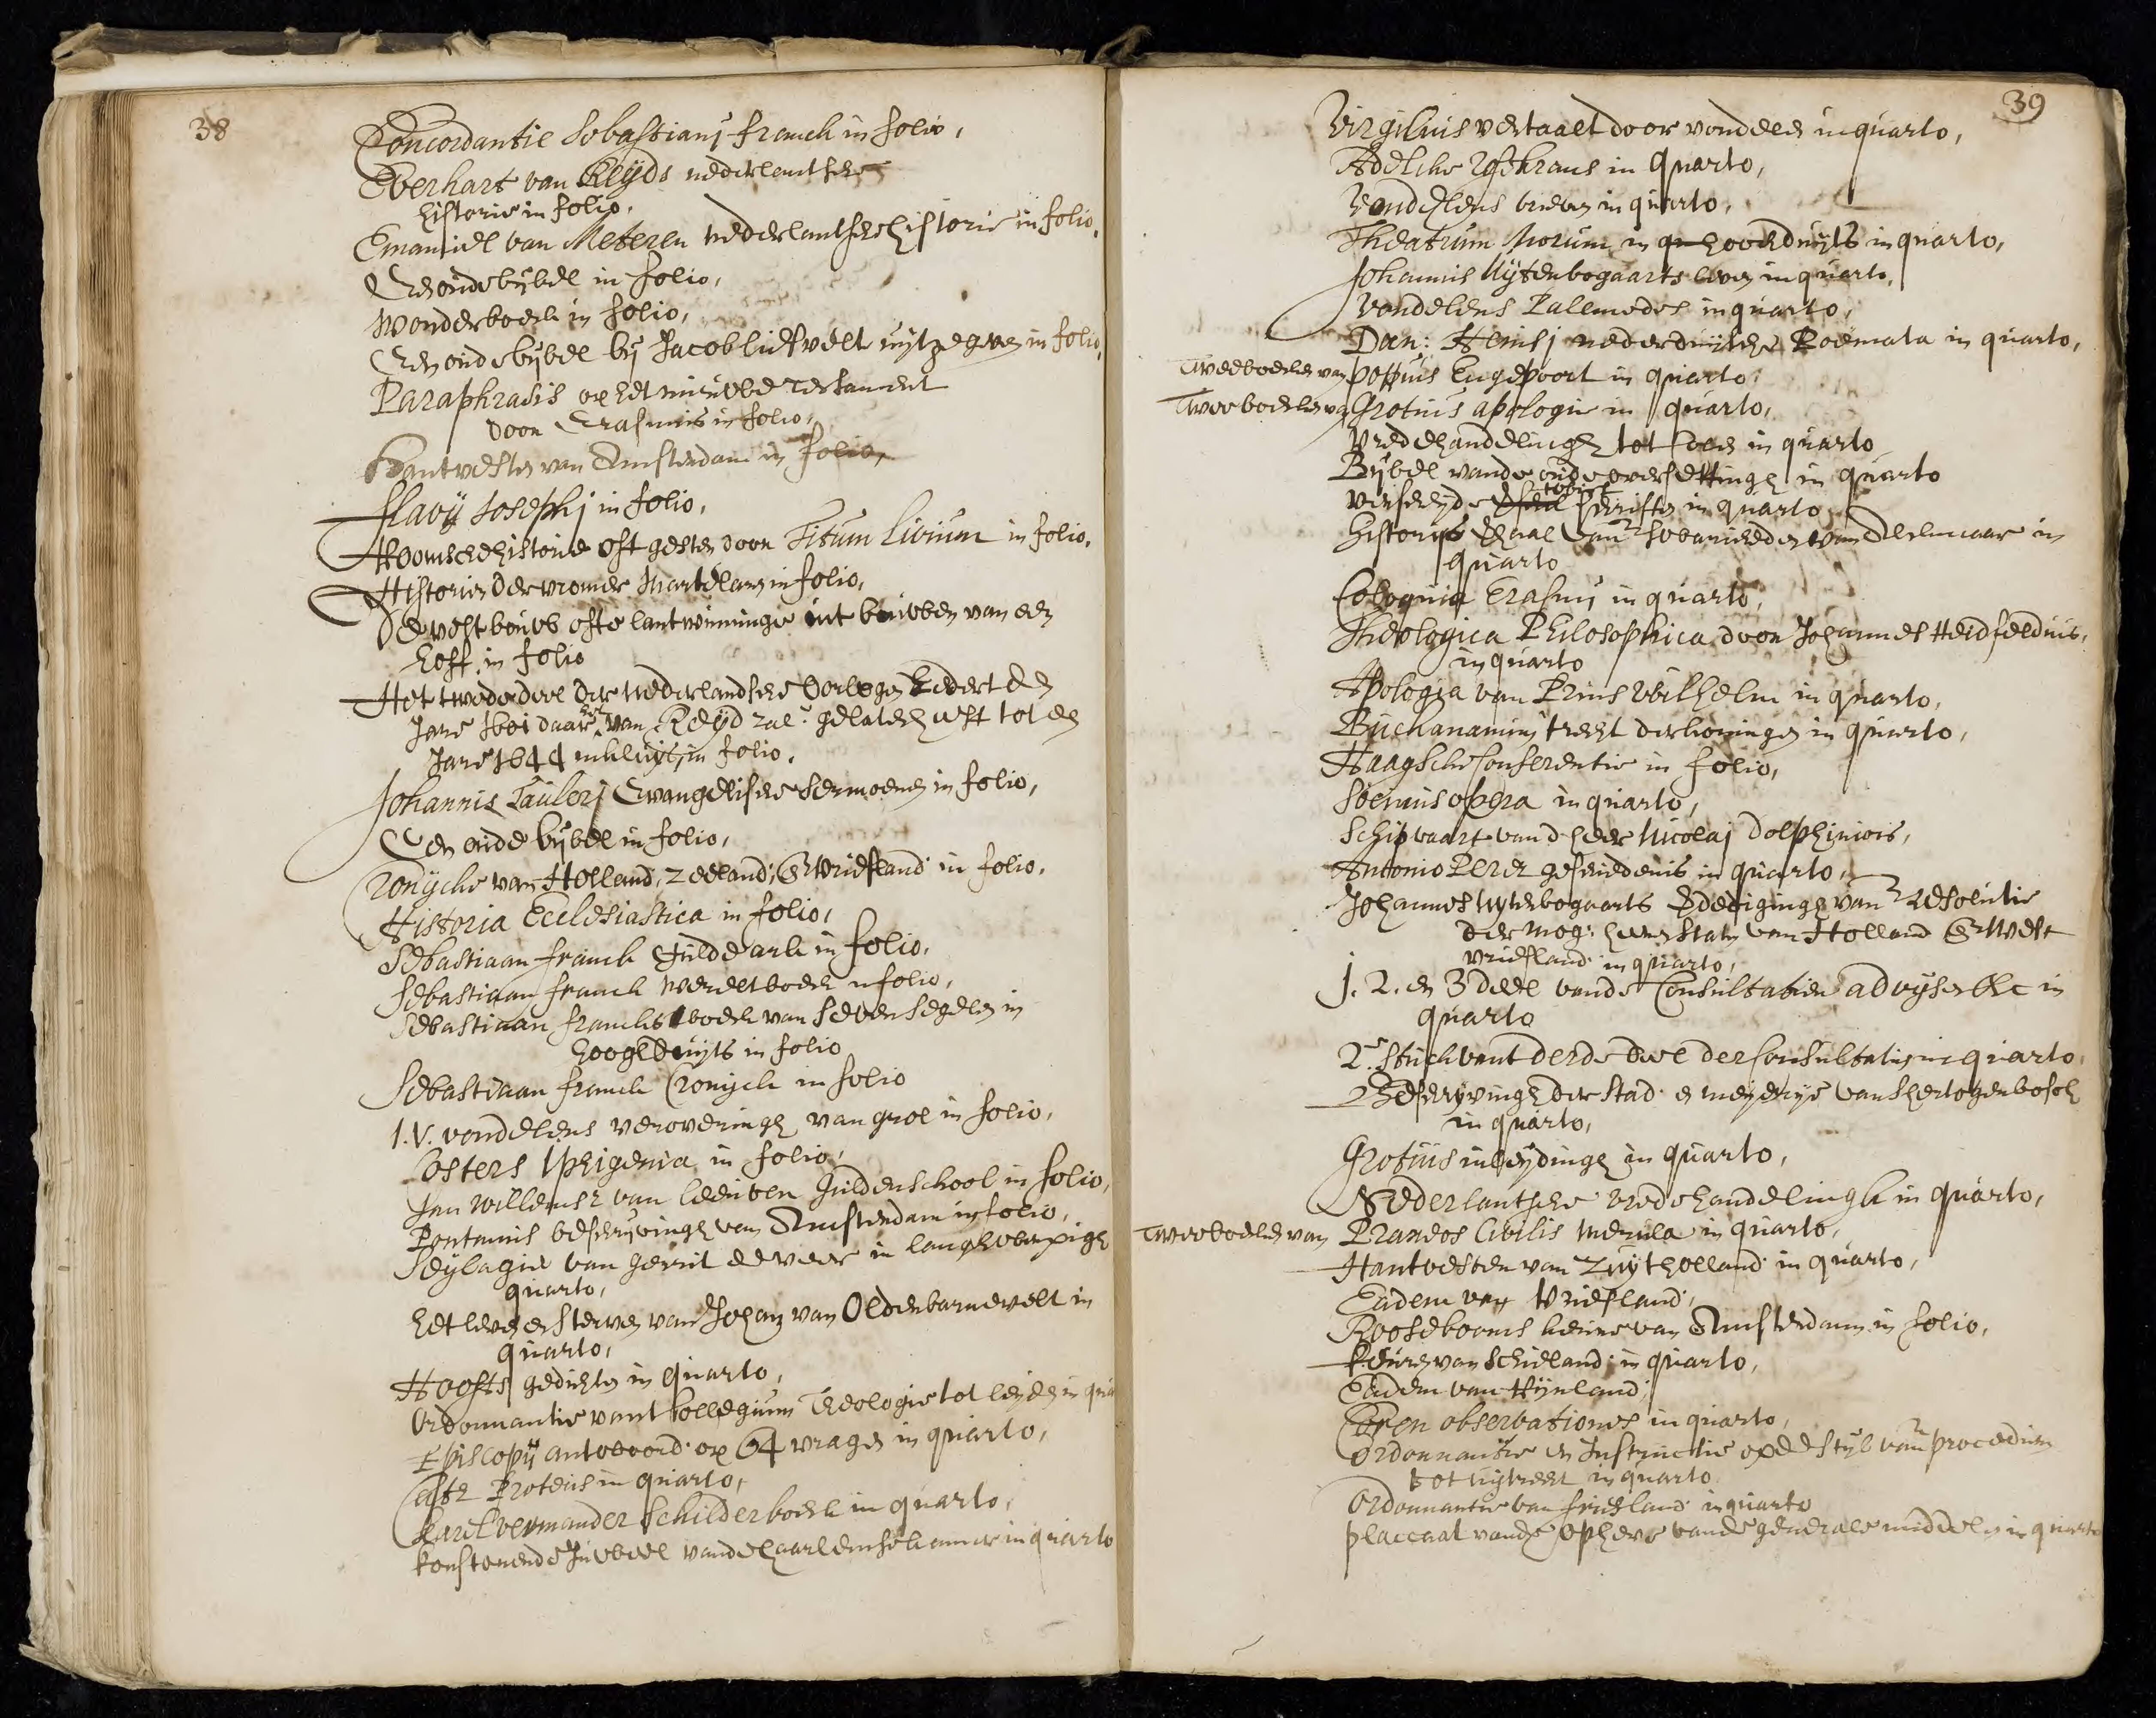 38
Concordantie Sebastiani franck in folio,
Everhart van Reijds nederlantsche
historie in folio.
Emanuel van Meteren nederlantsche historie in folio,
Een oude bijbel in folio,
Wonderboeck in folio,
Een oude bijbel bij Jacob liesvelt uijtgegeven in folio,
Paraphrasis op het nieuwe testament
door Erasmus in folio,
Hantvesten van Amsterdam in folio,
flavij Josephi in folio,
Roomsche historie oft gesten door Titum Livium in folio,
Historien der vromer Martelaren in folio,
De veltbouw ofte lantwinninge int bouwen van een
hoff in folio
Het tweede deel der Nederlandsche Oorlogen tsedert den
Jare 1601 daar het van Reijd zal: gelaten heeft tot den
Jare 1644 incluijs, in folio.
Johannis Tauleri Evangelische sermoenen in folio,
Een oude bijbel in folio,
Cronijcke van Holland, Zeeland, & vriesland in folio,
Historia Ecclesiastica in folio,
Sebastiaan franck Guldearck in folio,
Sebastiaan franck Wereltboeck in folio,
Sebastiaan francks boeck van seven segelen in
hooghduijts in folio
Sebastiaan franck Cronijck in folio
I. V. vondelens veroveringh van grol in folio,
Costers Iphigenia in folio,
Jan Willemsz van leeuwen guldenschool in folio,
Pontanus beschrijvingh van Amsterdam in folio,
Seijlagie van gerrit de veer in langhwerpigh
quarto,
Het leven en sterven van Johan van Oldenbarnevelt in
quarto,
Hoofts gedichten in quarto,
Ordonnantie vant Collegium Theologie tot leijden in qua
Episcopij antwoord op 64 vragen in quarto,
Cats Proteus in quarto,
Karel vermander schilderboeck in quarto,
Konstenende Juweel vande haarlemsche camer in quarto
39
Virgilius vertaelt door vondelen in quarto,
Adelike in quarto,
Vondelens brieven in quarto,
Theatrum morum in hoochduijts in quarto,
Johannis Uijtenbogaarts leven in quarto,
Vondelens Pallemedes in quarto,
Dan: Heinsij nederduijtsche Poëmata in quarto,
Twee boecken van poppius Engepoort in quarto,
Twee boecken van Grotius apologie in quarto,
Vredehandelingh tot Colen in quarto
Bijbel vande oude oversettingh in quarto
verscheijde schriften in quarto
Historis verhael vande van Alckmaar in
quarto
Coloquia Erasmij in quarto,
Theologica Philosophica door Johannes Heidfeldius,
in quarto
Apologia van Prins Wilhelm in quarto,
Buchananus recht der koningen in quarto,
Haagsche Conferentie in folio,
opera in quarto,
Schipvaart van d'heer Nicolaj Dolphinius,
Antonio Perez geschiedenis in quarto,
Johannes uytenbogaarts verdedigingh van resolutie
der Mog: heeren Staten van Holland & West
vriesland in quarto,
1. 2. en 3 deel vande Consultatien advijsen &c in
quarto
2e stuck vant derde deel der Consultatien in quarto,
Beschrijvingh der Stad en meijerije van Shertogenbosch
in quarto,
Grotius inleijdingh in quarto,
Nederlantsche vredehandelingh in quarto,
Twee boecken van Praxeos Civilis Merula in quarto,
Hantvesten van Zuijtholland in quarto,
Eadem van Vriesland,
Roosebooms keuren van Amsterdam in folio,
Keuren van Schieland in quarto,
Eadem van Rijnland,
Coren observationes in quarto,
Ordonnantie en Instructie opde stijl van procederen
tot Uijtrecht in quarto
Ordonnantie van friesland in quarto
placcaat vande ophere vande generale middelen in quarto